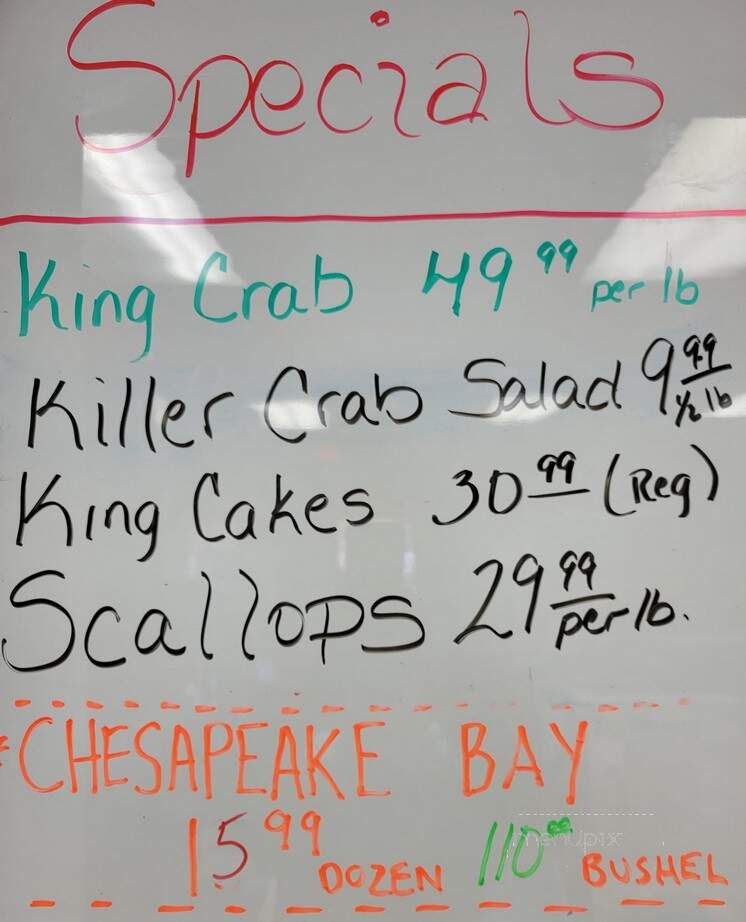 Specials
King Crab 49 99 per lb
Killer Crab Salad 9 99 1/2 lb
King Cakes 30 99 (Reg)
Scallops 29 99 per lb.
CHESAPEAKE BAY
15 99 DOZEN 110 00 BUSHEL
menupix